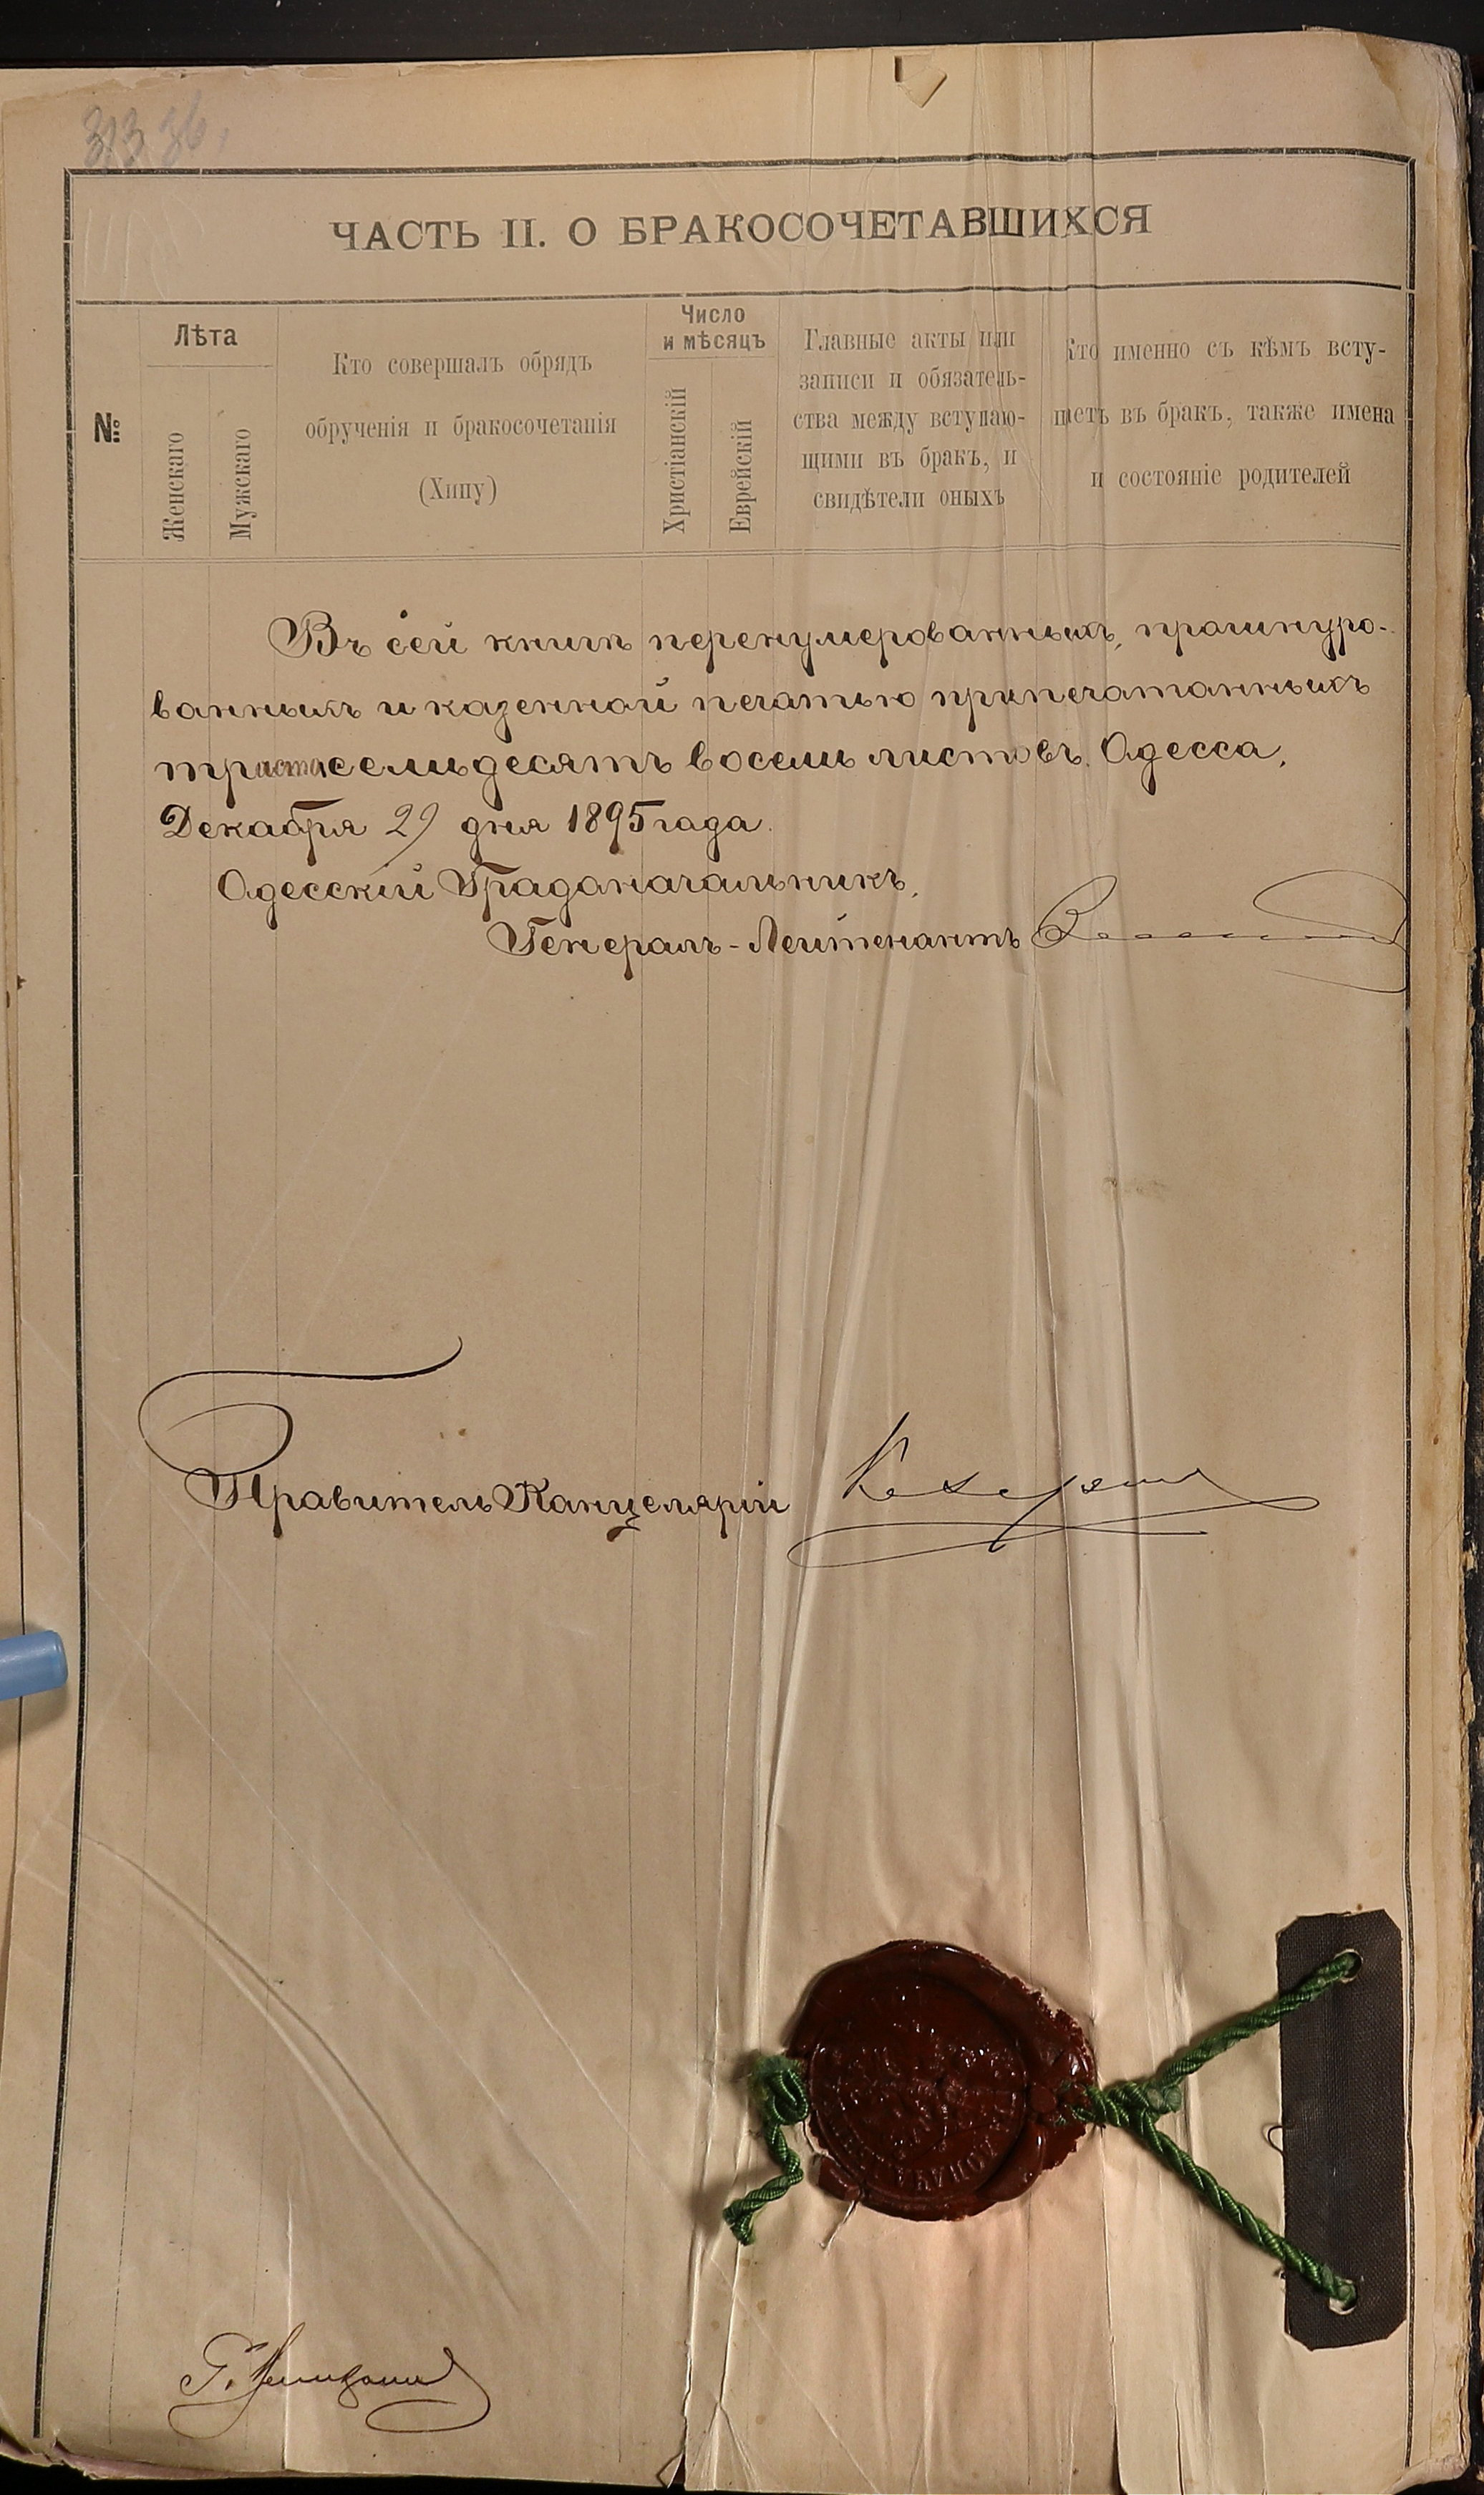 ЧАСТЬ II. О БРАКОСОЧЕТАВШИХСЯ
№
Лѣта
Женскаго
Мужскаго
Кто совершалъ обрядъ
обрученія и бракосочетанія
(Хипу)
Число
и мѣсяцъ
Христіанскій
Еврейскій
Главные акты или
записи и обязатель-
ства между вступаю-
щими въ бракъ, и
свидѣтели оныхъ
Кто именно съ кѣмъ всту-
паетъ въ бракъ, также имена
и состояніе родителей
Въ сей книгѣ перенумерованныхъ, прошнуро-
ванныхъ и казенной печатью припечатанныхъ
тристасемьдесятъ восемь листовъ. Одесса,
Декабря 29 дня 1895 года.
Одесскій Градоначальникъ,
Генералъ-Лейтенантъ
Правитель Канцеляріи